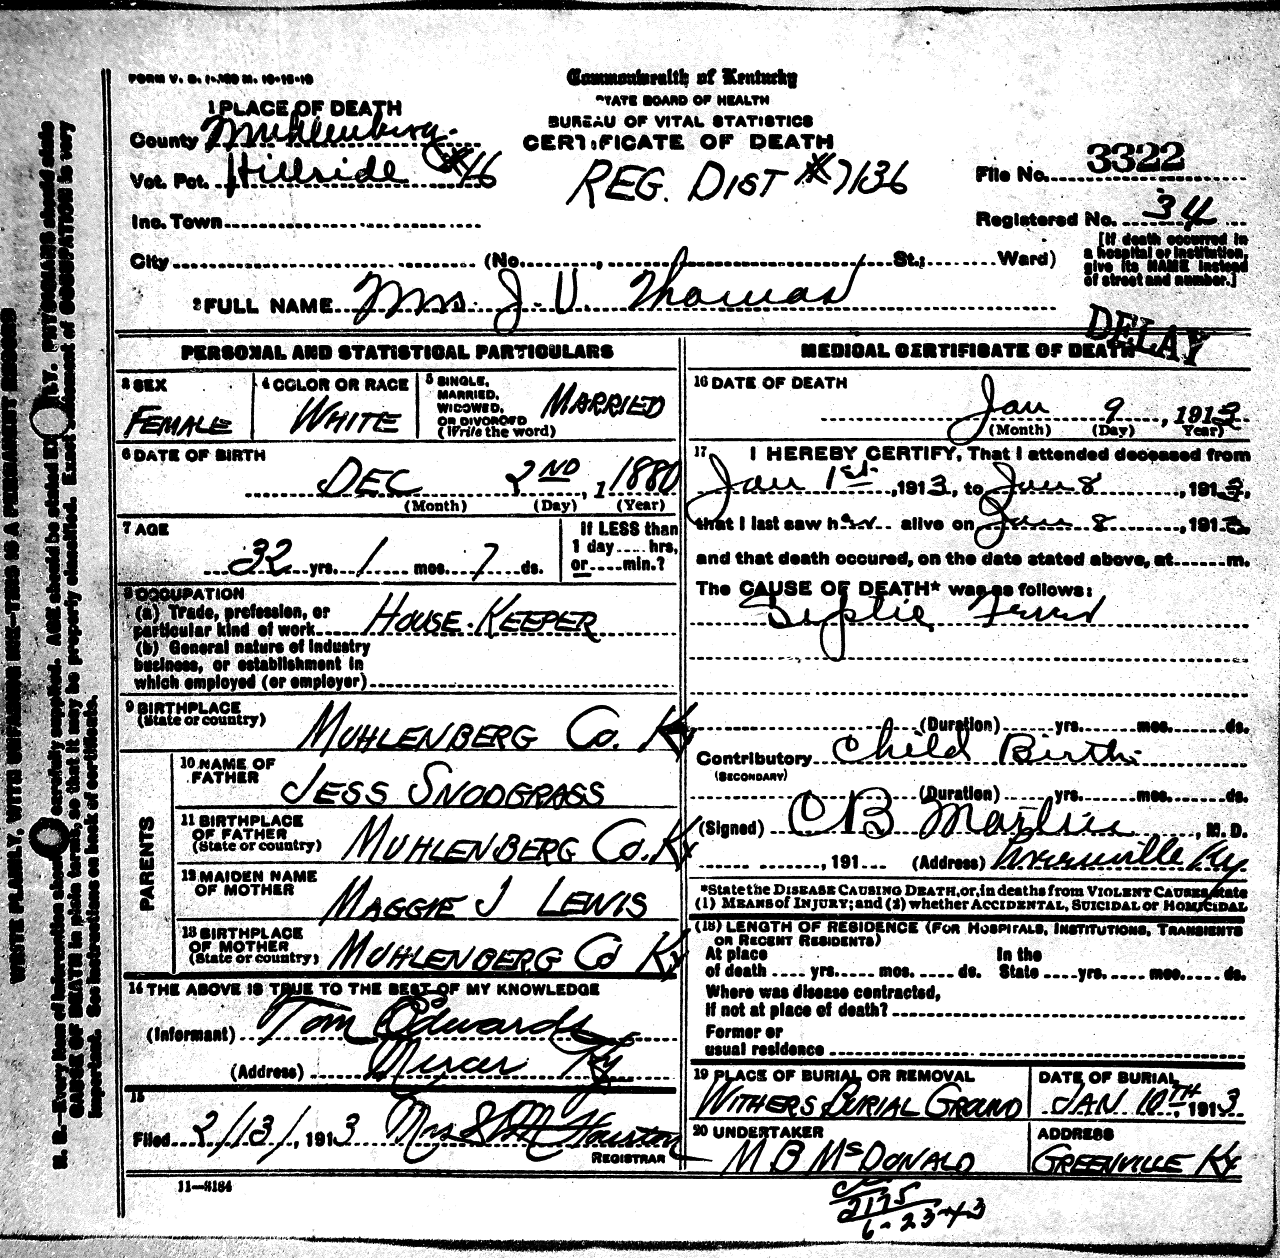 FORM V. S. 1-
Commonwealth of Kentucky
STATE BOARD OF HEALTH
BUREAU OF VITAL STATISTICS
CERTIFICATE OF DEATH
REG. DIST #7136
1 PLACE OF DEATH
County Muhlenberg.
Vot. Pct. Hillside #46
Inc. Town
City (No. , St.; Ward)
File No. 3322
Registered No. 34
[If death occurred in
a hospital or institution,
give its NAME instead
of street and number.]
2 FULL NAME Mrs. J. V. Thomas
DELAY
PERSONAL AND STATISTICAL PARTICULARS
3 SEX
FEMALE
4 COLOR OR RACE
WHITE
5 SINGLE,
MARRIED,
WIDOWED,
OR DIVORCED
(Write the word)
MARRIED
6 DATE OF BIRTH
DEC 2ND, 1880
(Month) (Day) (Year)
7 AGE
32 yrs. 1 mos. 7 ds.
If LESS than
1 day..... hrs,
or.....min.?
8 OCCUPATION
(a) Trade, profession, or
particular kind of work HOUSE-KEEPER
(b) General nature of industry
business, or establishment in
which employed (or employer)
9 BIRTHPLACE
(State or country)
MUHLENBERG CO. KY
PARENTS
10 NAME OF
FATHER
JESS SNODGRASS
11 BIRTHPLACE
OF FATHER
(State or country)
MUHLENBERG CO. KY
12 MAIDEN NAME
OF MOTHER
MAGGIE J LEWIS
13 BIRTHPLACE
OF MOTHER
(State or country)
MUHLENBERG CO KY
14 THE ABOVE IS TRUE TO THE BEST OF MY KNOWLEDGE
(Informant) Tom Edwards
(Address) Mercer Ky
15
Filed 2/13/, 1913 Mrs Houston
REGISTRAR
11—3184
MEDICAL CERTIFICATE OF DEATH
16 DATE OF DEATH
Jan 9, 1913
(Month) (Day) Year)
17 I HEREBY CERTIFY, That I attended deceased from
Jan 1st., 1913, to Jan 8, 1913,
that I last saw her alive on Jan 8, 1913
and that death occured, on the date stated above, at......m.
The CAUSE OF DEATH* was as follows:
Septic
(Duration) yrs. mos. ds.
Contributory Child Birth
(SECONDARY)
(Duration) yrs. mos. ds.
(Signed) C B Martin, M. D.
, 191 (Address) Greenville Ky
*State the DISEASE CAUSING DEATH, or, in deaths from VIOLENT CAUSES, state
(1) MEANS of INJURY; and (2) whether ACCIDENTAL, SUICIDAL OR HOMICIDAL
(18) LENGTH OF RESIDENCE (FOR HOSPITALS, INSTITUTIONS, TRANSIENTS
OR RECENT RESIDENTS)
At place In the
of death .... yrs. mos. ds. State yrs. mos. ds.
Where was disease contracted,
if not at place of death?
Former or
usual residence
19 PLACE OF BURIAL OR REMOVAL
WITHERS BURIAL GROUND
DATE OF BURIAL
JAN 10TH 1913
20 UNDERTAKER
M B McDONALD
ADDRESS
GREENVILLE KY
2175
6-23-43
WRITE PLAINLY, WITH UNFADING INK—THIS IS A PERMANENT RECORD
N. B.—Every item of information should be carefully supplied. AGE should be stated EXACTLY. PHYSICIANS should state
CAUSE OF DEATH in plain terms, so that it may be properly classified. Exact statement of OCCUPATION is very
important. See instructions on back of certificate.